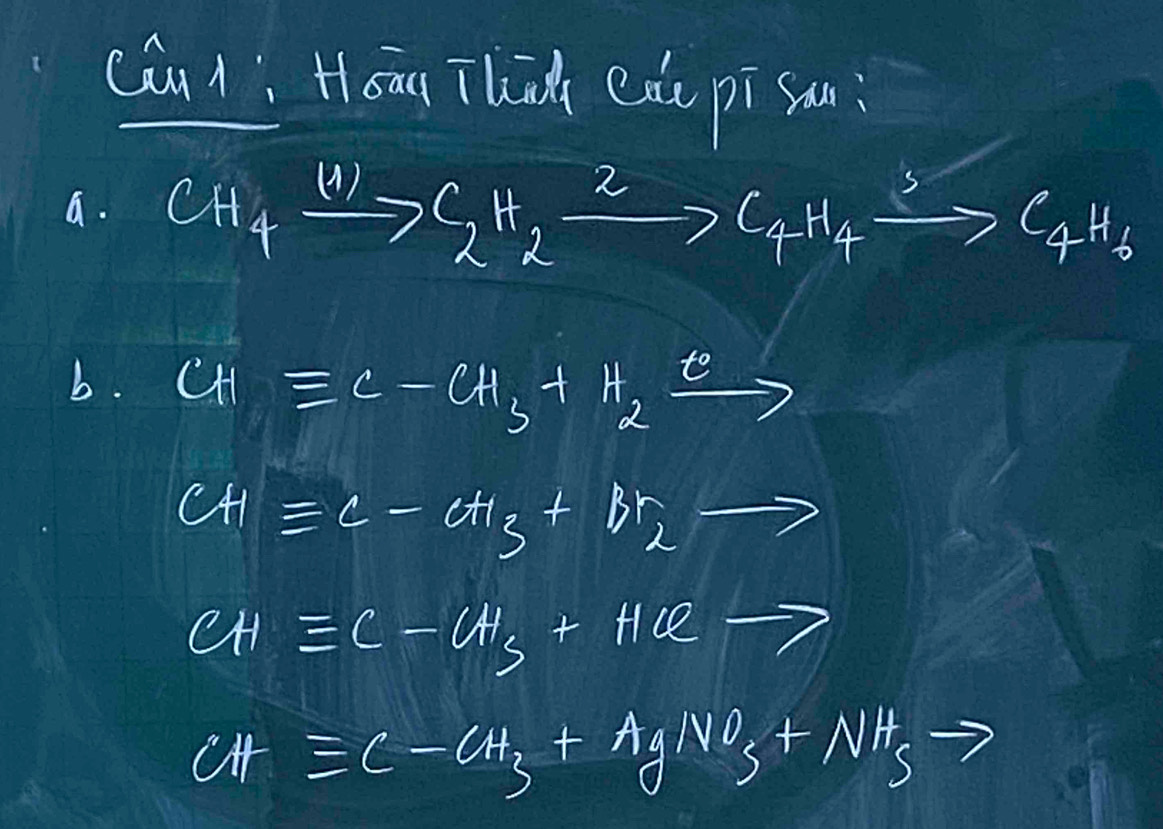 Câu 1 : Hoàn Thành các pT sau :
a. CH₄ (1)→ C₂H₂ 2→ C₄H₄ 3→ C₄H₆
b. CH ≡ C – CH₃ + H₂ t°→
CH ≡ C – CH₃ + Br₂ →
CH ≡ C – CH₃ + HCl →
CH ≡ C – CH₃ + AgNO₃ + NH₃ →